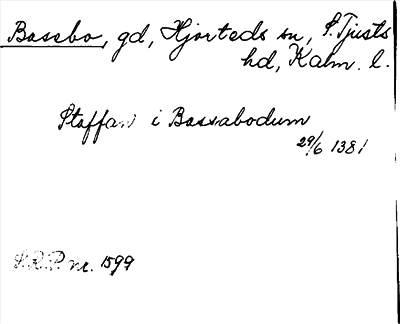 Bassbo, gd, Hjorteds sn, S. Tjusts
hd, Kalm. l.
Staffan i Bassabodum
29/6 1381
S.R.P. nr. 1599